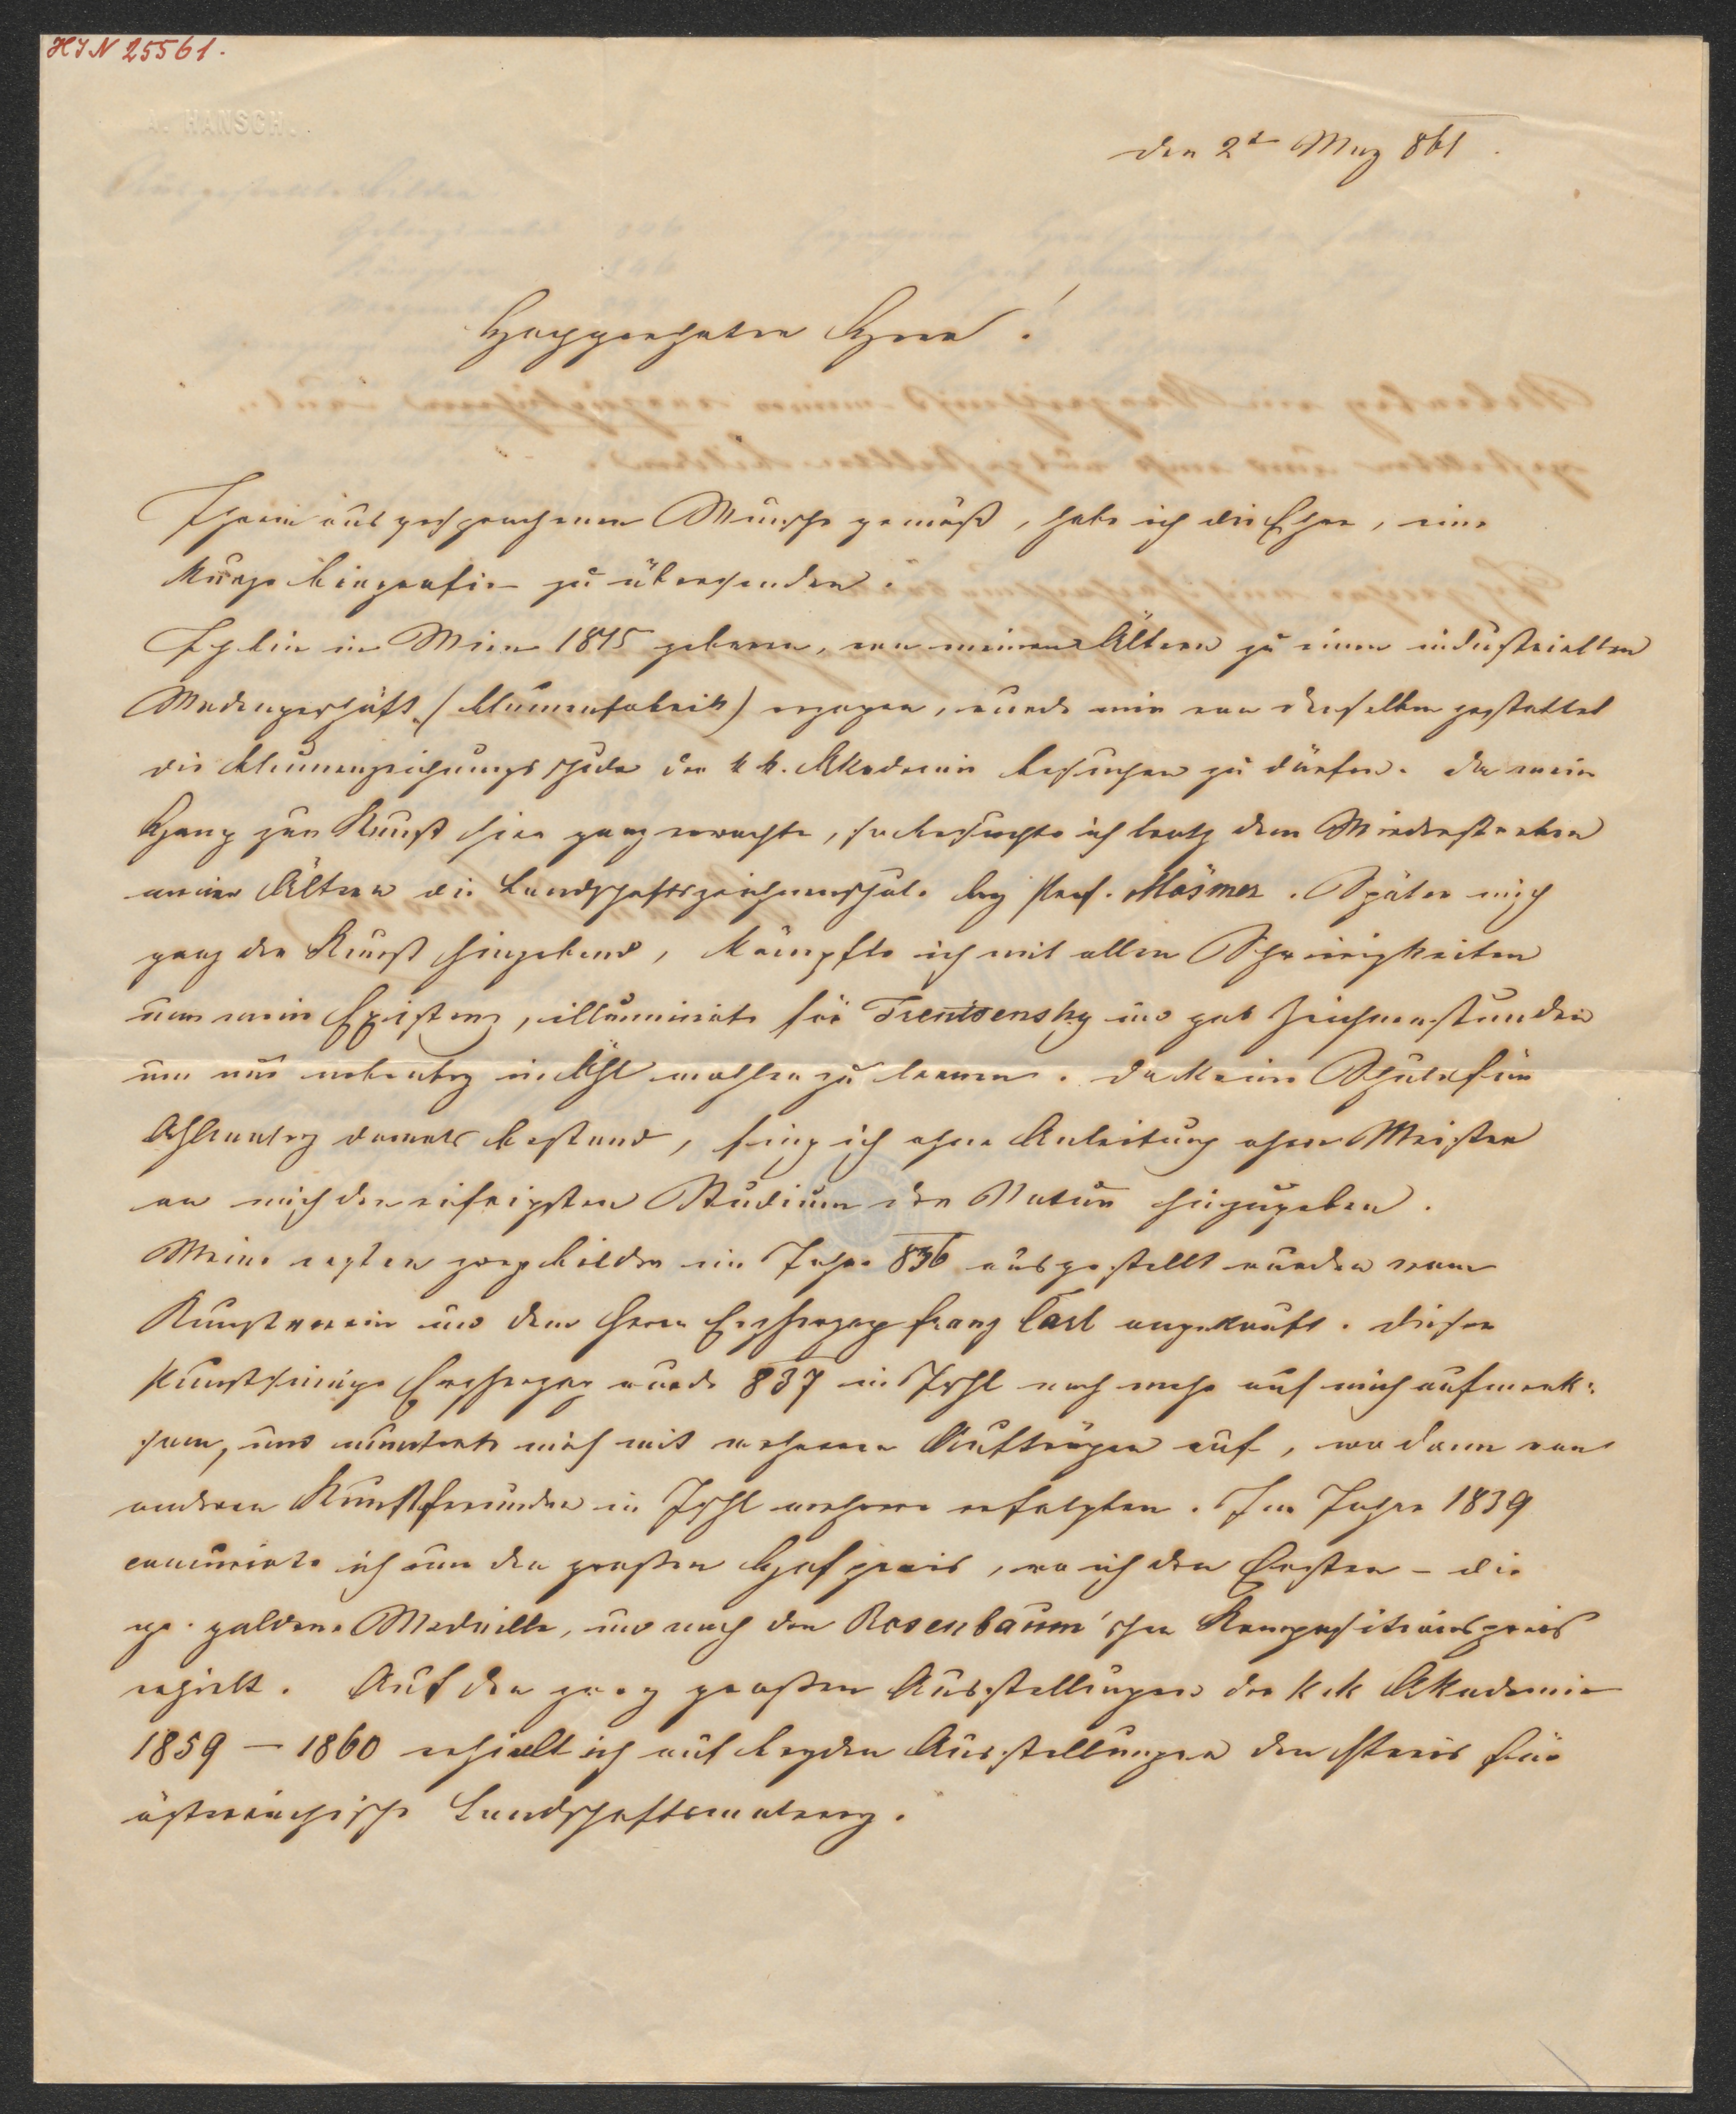 H I N 25561.
A. HANSCH.
den 2t May 861.
Hochgeehrter Herr!
Ihrem ausgesprochenen Wunsche gemäß, habe ich die Ehre, eine
kurze Biografie zu übersenden.
Ich bin in Wien 1815 geboren, von meinen Ältern zu einem industriellen
Modengeschäft (Blumenfabrik) erzogen, wurde mir von denselben gestattet
die Blumenzeichnungsschule der k k. Akademie besuchen zu dürfen. Da mein
Hang zur Kunst hier ganz erwachte, so besuchte ich trotz dem Wiederstreben
meiner Ältern die Landschaftszeichnenschule bey Prof. Mösmer. Später mich
ganz der Kunst hingebend, kämpfte ich mit allen Schwierigkeiten
um meine Existenz, illuminirte für Trentsensky und gab Zeichnenstunden
um nur nebenbey in Öhl mahlen zu lernen. Da keine Schule für
Öhlmalerey damals bestand, fing ich ohne Anleitung ohne Meister
an mich den eifrigsten Studium der Natur hinzugeben.
Meine ersten zwey Bilder im Jahre 836 ausgestellt wurden vom
Kunstverein und dem Herrn Erzherzog Franz Carl angekauft. Dieser
kunstsinnige Erzherzog wurde 837 in Ischl noch mehr auf mich aufmerk-
sam, und munterte mich mit mehreren Aufträgen auf, wo dann von
anderen Kunstfreunden in Ischl mehrere erfolgten. Im Jahre 1839
concurirte ich um den großen Hofpreis, wo ich den Ersten – die
gr. goldene Medaille, und auch den Rosenbaum'schen Kompositionspreis
erhielt. Auf den zwey großen Ausstellungen der k k Akademie
1859 – 1860 erhielt ich auf beyden Ausstellungen den Preis für
österreichische Landschaftsmalerey.